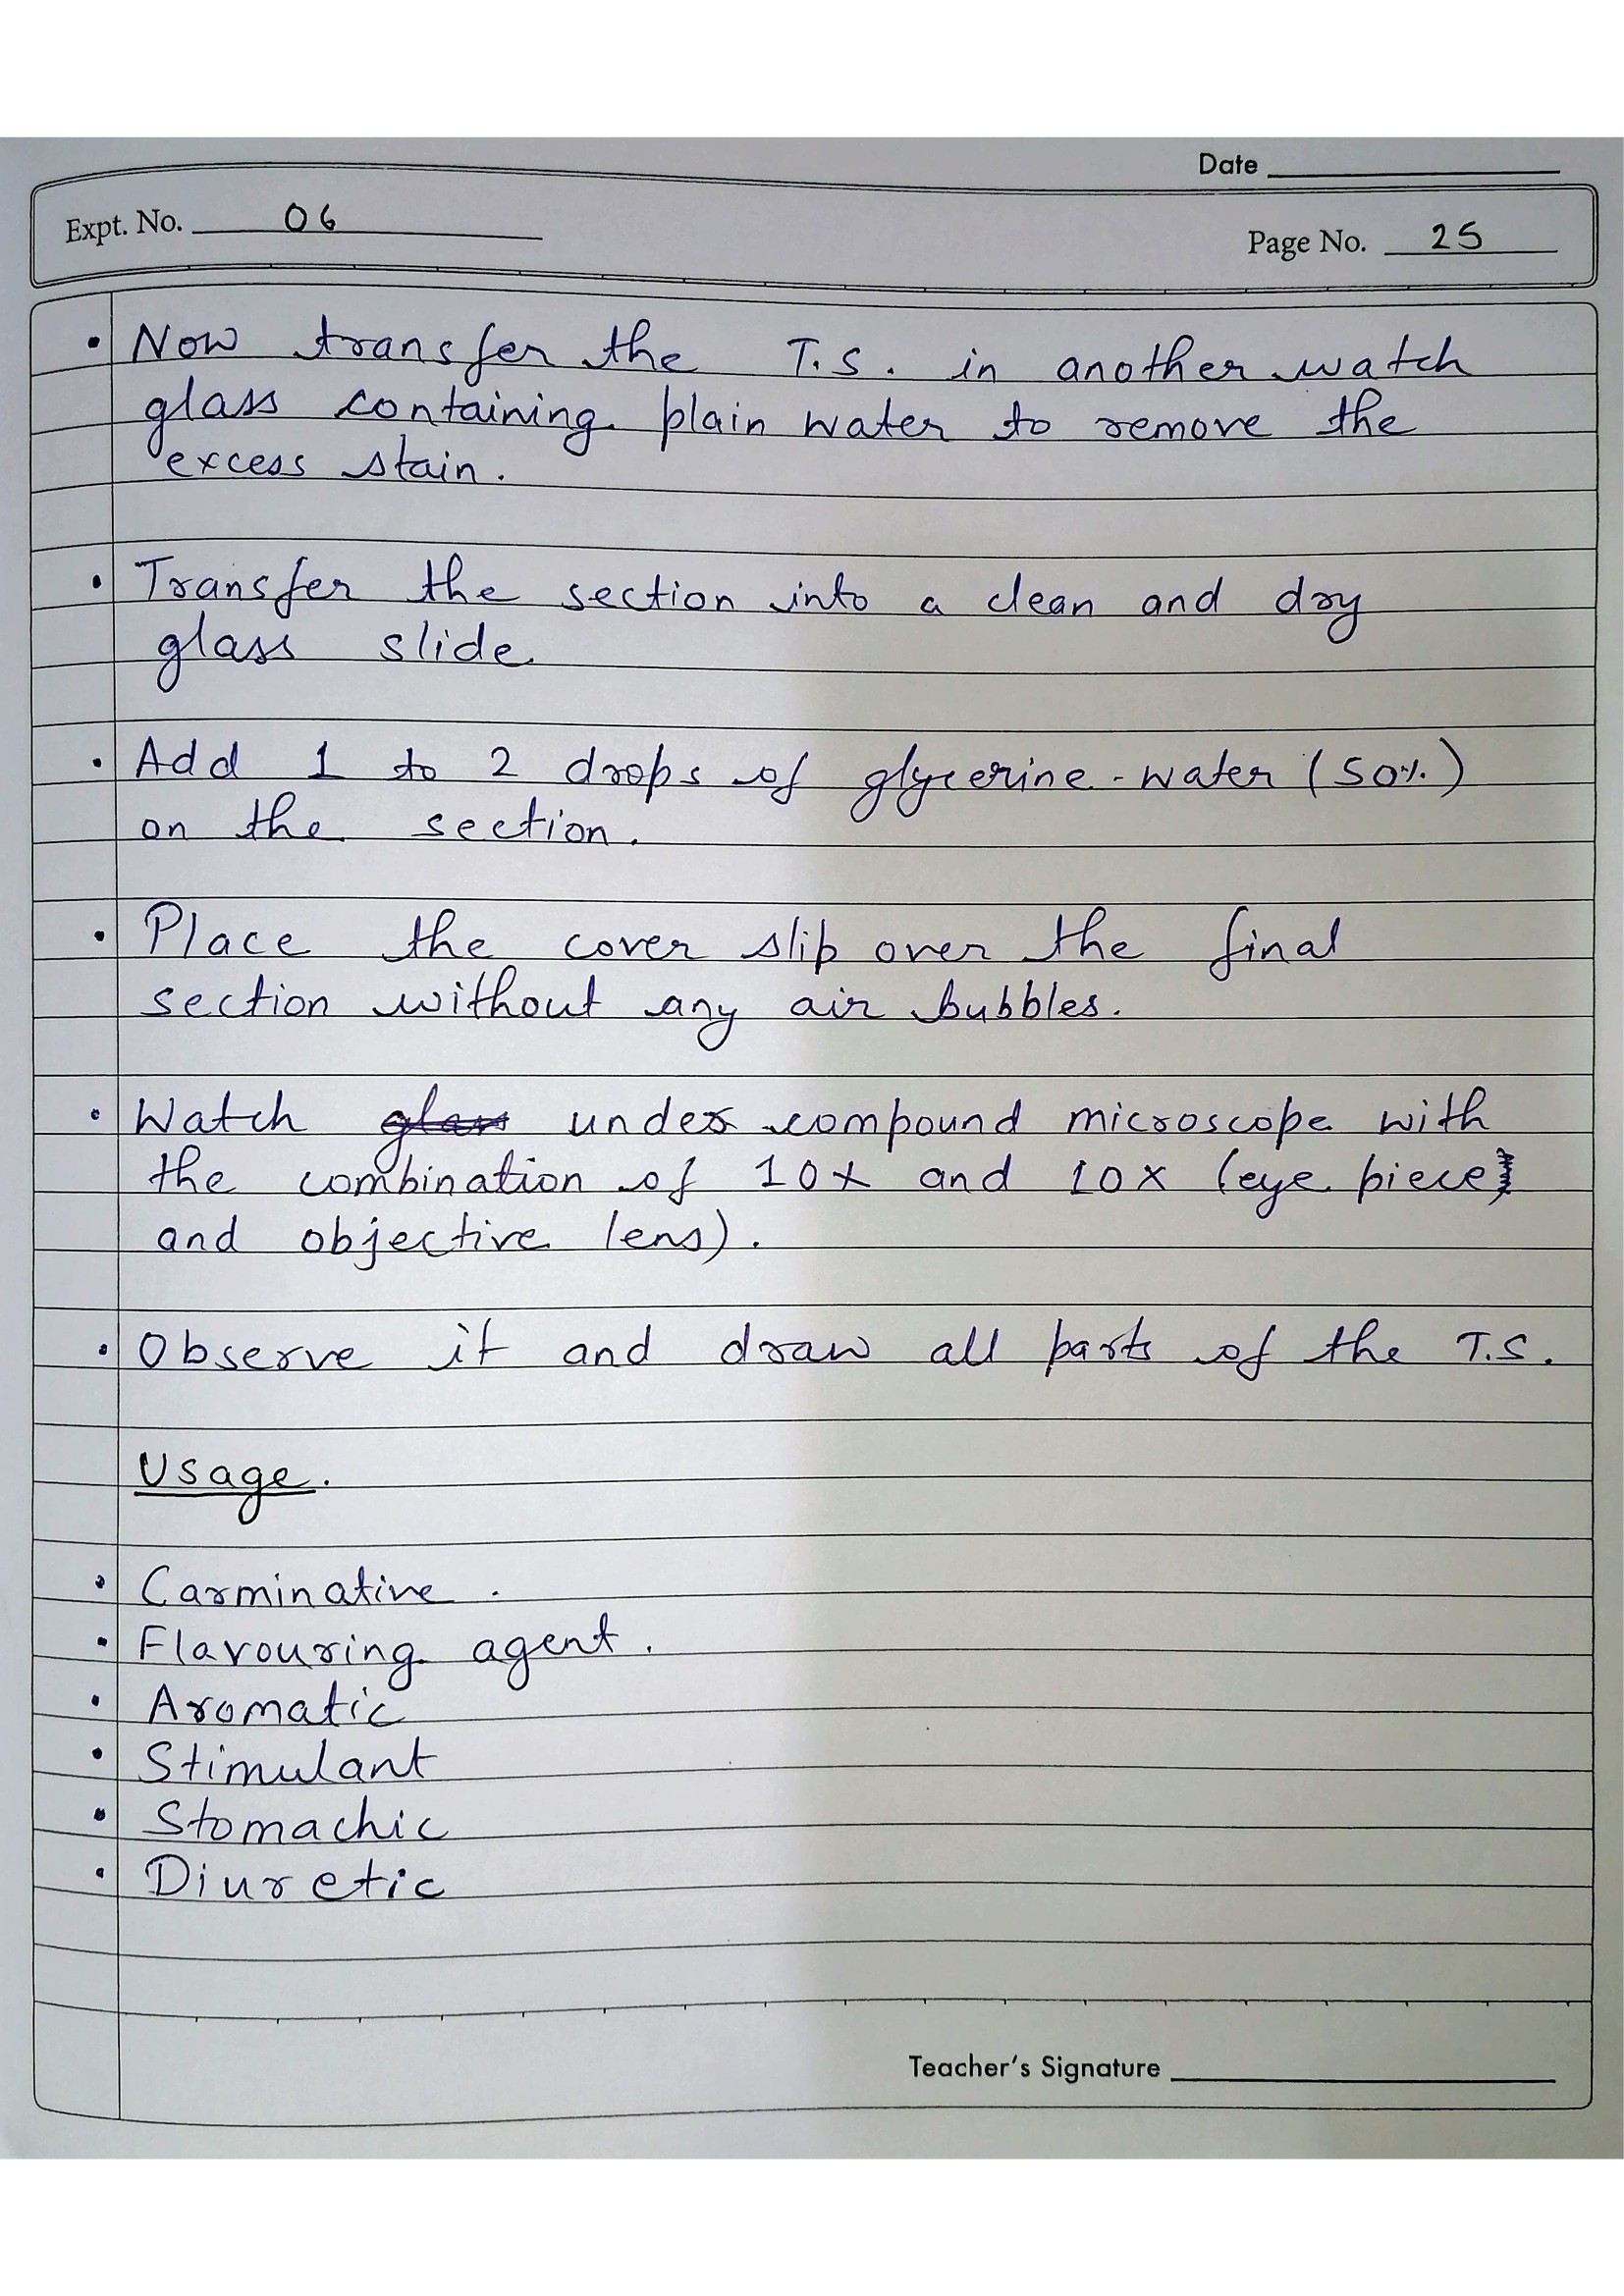 Date
Expt. No. 06
Page No. 25
• Now transfer the T.S. in another watch
glass containing plain water to remove the
excess stain.
• Transfer the section into a clean and dry
glass slide.
• Add 1 to 2 drops of glycerine-water (50%)
on the section.
• Place the cover slip over the final
section without any air bubbles.
• Watch glass under compound microscope with
the combination of 10x and 10x (eye piece
and objective lens).
• Observe it and draw all parts of the T.S.
Usage.
• Carminative.
• Flavouring agent.
• Aromatic
• Stimulant
• Stomachic
• Diuretic
Teacher's Signature